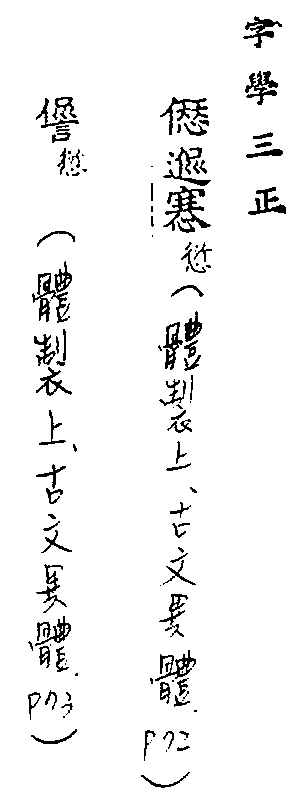 字學三正
愆(體製上、古文異體.P72)
愆(體製上、古文異體.P73)